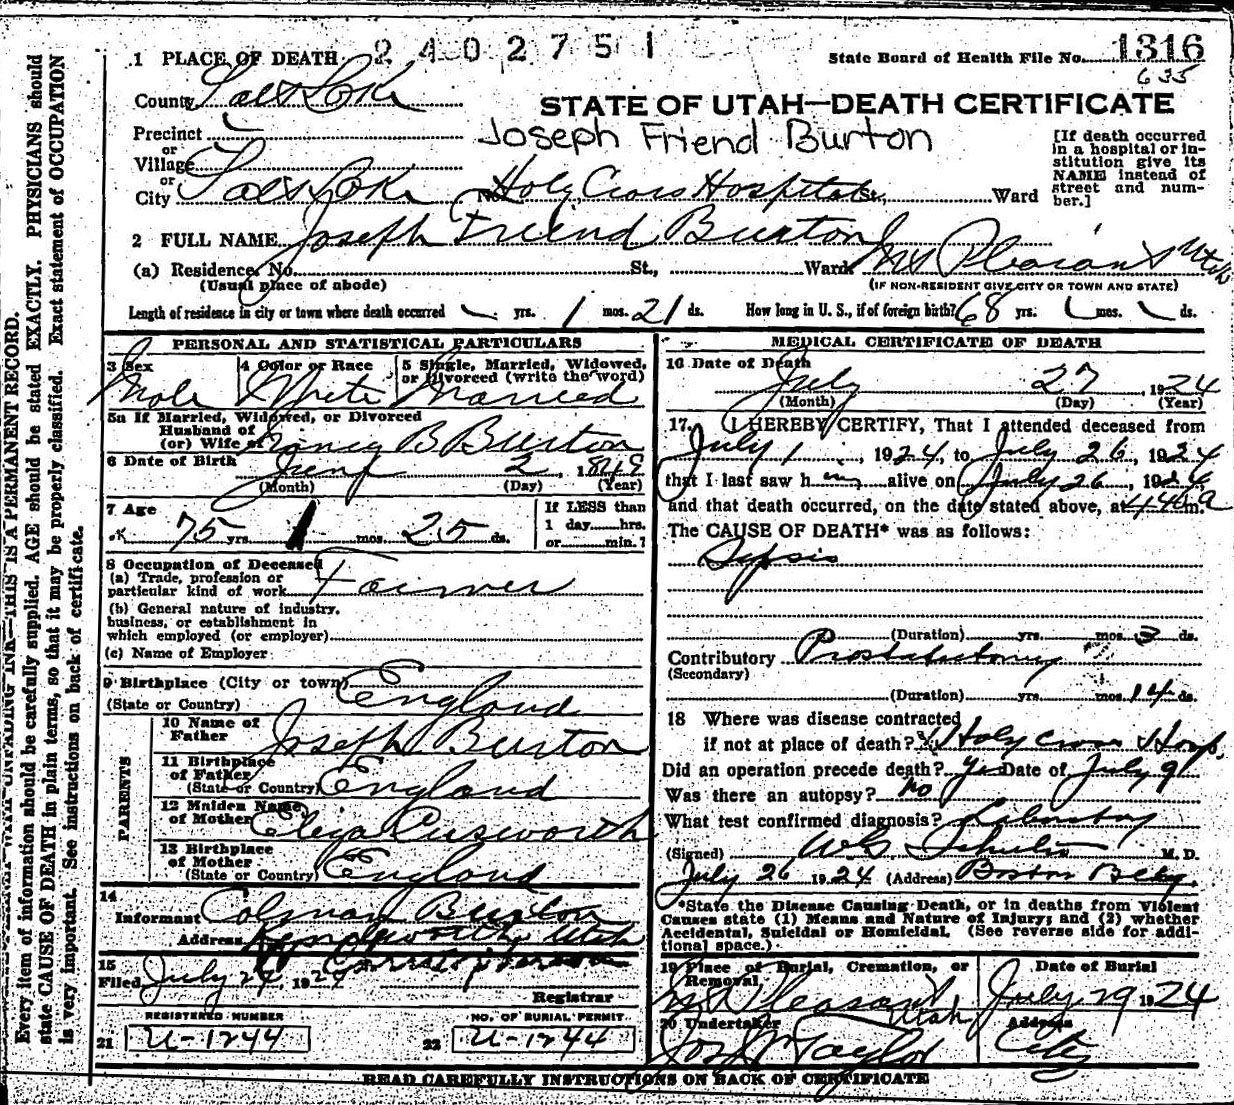 2402751
1 PLACE OF DEATH
State Board of Health File No. 1316
635
County Salt Lake
STATE OF UTAH—DEATH CERTIFICATE
Precinct
Joseph Friend Burton
or
Village
or
City Salt Lake No. Holy Cross Hospital St., Ward
[If death occurred
in a hospital or in-
stitution give its
NAME instead of
street and num-
ber.]
2 FULL NAME Joseph Friend Burton
(a) Residence. No. St., Ward. Mt Pleasant Utah
(Usual place of abode)
(IF NON-RESIDENT GIVE CITY OR TOWN AND STATE)
Length of residence in city or town where death occurred yrs. 1 mos. 21 ds. How long in U. S., if of foreign birth? 68 yrs. mos. ds.
PERSONAL AND STATISTICAL PARTICULARS
3 Sex
4 Color or Race
5 Single, Married, Widowed,
or Divorced (write the word)
Male White Married
5a If Married, Widowed, or Divorced
Husband of
(or) Wife of Nancy B Burton
6 Date of Birth
June 2, 1849
(Month) (Day) (Year)
7 Age
75 yrs. 1 mos. 25 ds.
If LESS than
1 day......hrs.
or......min.?
8 Occupation of Deceased
(a) Trade, profession or
particular kind of work Farmer
(b) General nature of industry,
business, or establishment in
which employed (or employer)
(c) Name of Employer
9 Birthplace (City or town)
(State or Country) England
PARENTS
10 Name of
Father Joseph Burton
11 Birthplace
of Father
(State or Country) England
12 Maiden Name
of Mother Eliza Cusworth
13 Birthplace
of Mother
(State or Country) England
14
Informant Colman Burton
Address Utah
15
Filed July 1924
Registrar
REGISTERED NUMBER
NO. OF BURIAL PERMIT
21 U-1244
22 U-1244
MEDICAL CERTIFICATE OF DEATH
16 Date of Death
July 27, 1924
(Month) (Day) (Year)
17. I HEREBY CERTIFY, That I attended deceased from
July 1, 1924, to July 26, 1924
that I last saw him alive on July 26, 1924
and that death occurred, on the date stated above, at m.
The CAUSE OF DEATH* was as follows:
Sypsis
(Duration) yrs. mos. 3 ds.
Contributory Prostatectomy
(Secondary)
(Duration) yrs. mos. 14 ds.
18 Where was disease contracted
if not at place of death? Holy Cross Hosp.
Did an operation precede death? Yes Date of July 9
Was there an autopsy? no
What test confirmed diagnosis?
(Signed) M. D.
July 26 1924 (Address) Boston Bldg.
*State the Disease Causing Death, or in deaths from Violent
Causes state (1) Means and Nature of Injury; and (2) whether
Accidental, Suicidal or Homicidal. (See reverse side for addi-
tional space.)
19 Place of Burial, Cremation, or
Removal
Date of Burial
Mt Pleasant, Utah
July 29 1924
20 Undertaker
Address
Jos Wm Taylor
City
READ CAREFULLY INSTRUCTIONS ON BACK OF CERTIFICATE
THIS IS A PERMANENT RECORD.
Every item of information should be carefully supplied. AGE should be stated EXACTLY. PHYSICIANS should
state CAUSE OF DEATH in plain terms, so that it may be properly classified. Exact statement of OCCUPATION
is very important. See instructions on back of certificate.